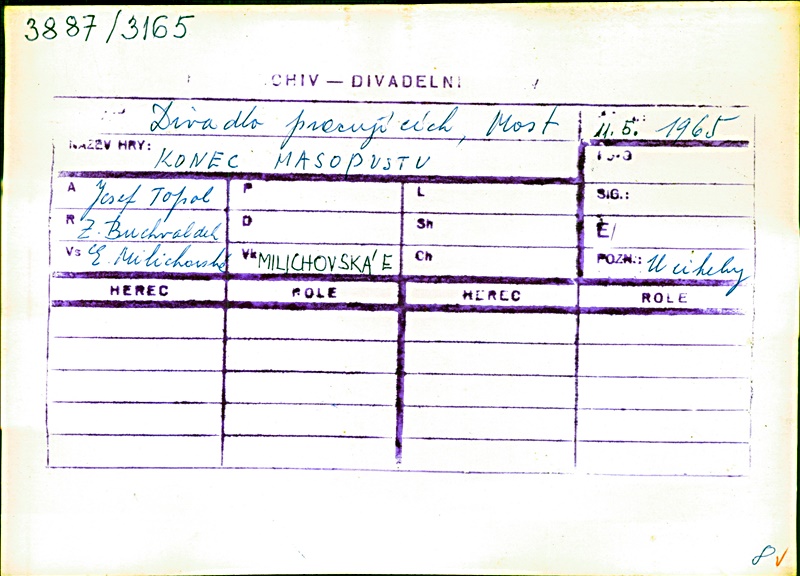 3887/3165
CHIV — DIVADELNÍ
Divadlo pracujících, Most 11.5. 1965
NÁZEV HRY: KONEC MASOPUSTU
A Josef Topol P L SIG.:
R Z. Buchvaldek D Sh E/
Vs E. Milichovská Vk MILICHOVSKÁ E Ch POZN.: U cihelny
HEREC ROLE HEREC ROLE
8